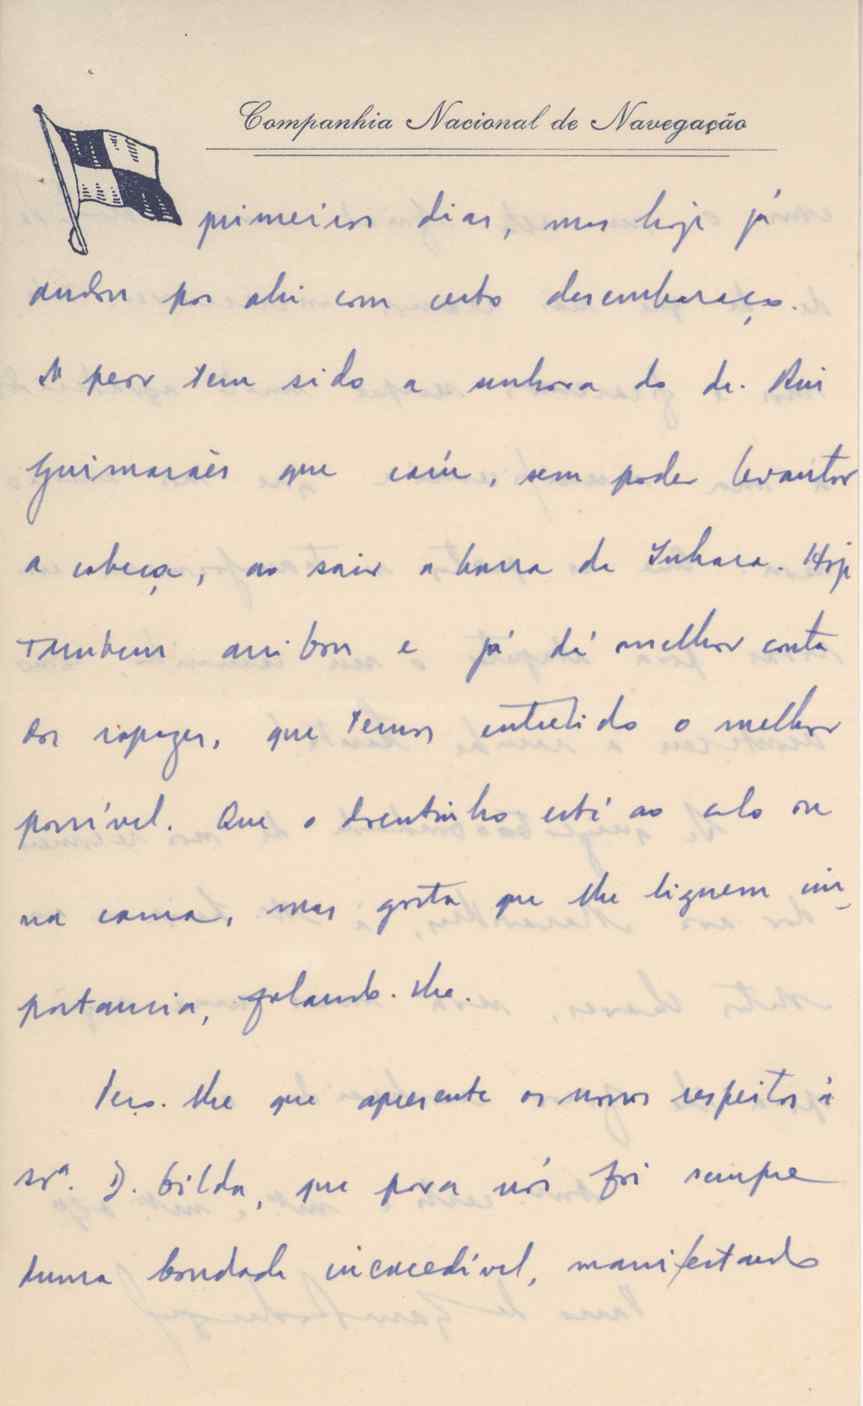 Companhia Nacional de Navegação
primeiros dias, mas hoje já
andou por ahi com certo desembaraço.
A peor tem sido a senhora do dr. Rui
Guimarães que caíu, sem poder levantar
a cabeça, ao sair a barra de Inhaca. Hoje
Tambem arribou e já dá melhor conta
dos rapazes, que temos entretido o melhor
possível. Que o doentinho está ao colo ou
na cama, mas gosta que lhe liguem im-
portancia, falando-lhe.
Peço-lhe que apresente os nossos respeitos à
srª. D. Gilda, que para nós foi sempre
duma bondade inexcedível, manifestando